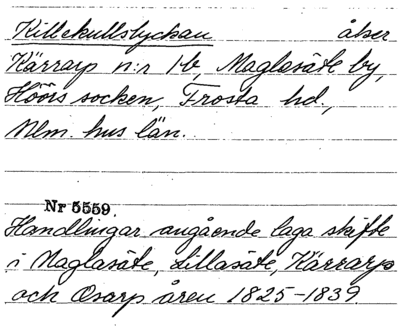 Killekullslyckan åker
Kärrarp n:r 1b, Maglasäte by,
Höörs socken, Frosta hd.,
Mlm. hus län.
Nr 5559.
Handlingar angående laga skifte
i Maglasäte, Lillasäte, Kärrarp
och Osarp åren 1825-1839.